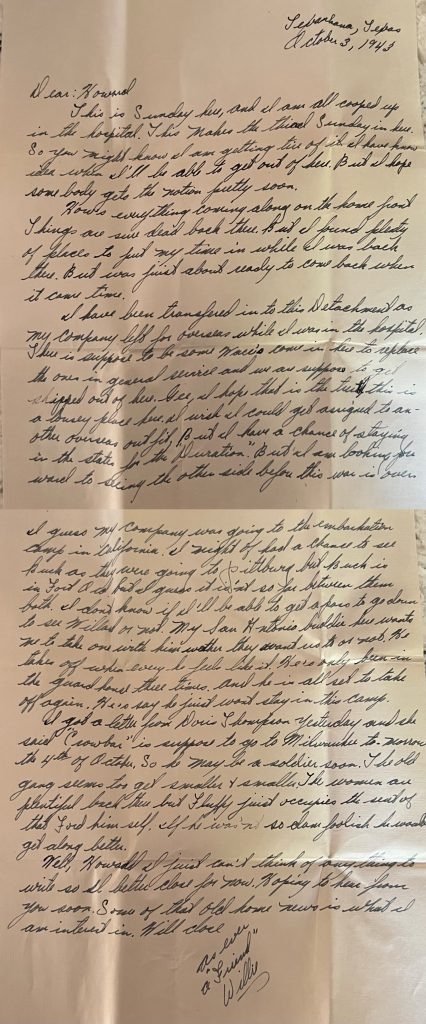 Texarkana, Texas
October 3, 1943
Dear: Howard
This is Sunday here, and I am all cooped up
in the hospital. This makes the third Sunday in here.
So you might know I am getting tire of it. I have know
idea when I'll be able to get out of here. But I hope
some body gets the notion pretty soon.
How's everything coming along on th home front
Things are sure dead back there. But I found plenty
of places to put my time in while I was back
there. But was juist about ready to come back when
it came time.
I have been transfered in to this Detachment as
my company left for overseas while I was in the hospital.
There is suppose to be some Wacs come in here to replace
the ones in general service and we are suppose to get
shipped out of here. Gee, I hope that is the truth this is
a lousey place here. I wish I could get assigned to an-
other overseas out fit, But I have a chance of staying
in the states for the Duration." But I am looking for
ward to seing the other side before this war is over.
I guess my company was going to the embarkation
camp in California. I might of had a chance to see
as they were going to Pittsburg but is
in Fort Ord but I guess it isn't so far between them
both. I don't know if I'll be able to get a pass to go down
to see Willard or not. My San Antonio buddie here wants
me to take one with him wether they want us to or not. He
takes off when every he feels like it. He's only been in
the guard house three times. And he is all set to take
off again. He's say he just wont stay in this camp.
I got a letter from Doris Thompson yesterday and she
said "Crowbar" is suppose to go to Milwaukee to-morrow
the 4th of October. So he may be a soldier soon. The old
gang seems too get smaller & smaller. The women are
plentiful back there but Fluffy juist occupies the seat of
that Ford him self. If he wasn't so darn foolish he would
get along better.
Well, Howard I juist can't think of anything to
write so I'll better close for now. Hoping to hear from
you soon. Some of that old home news is what I
am interest in. Will close
as ever
a "Friend"
Willie